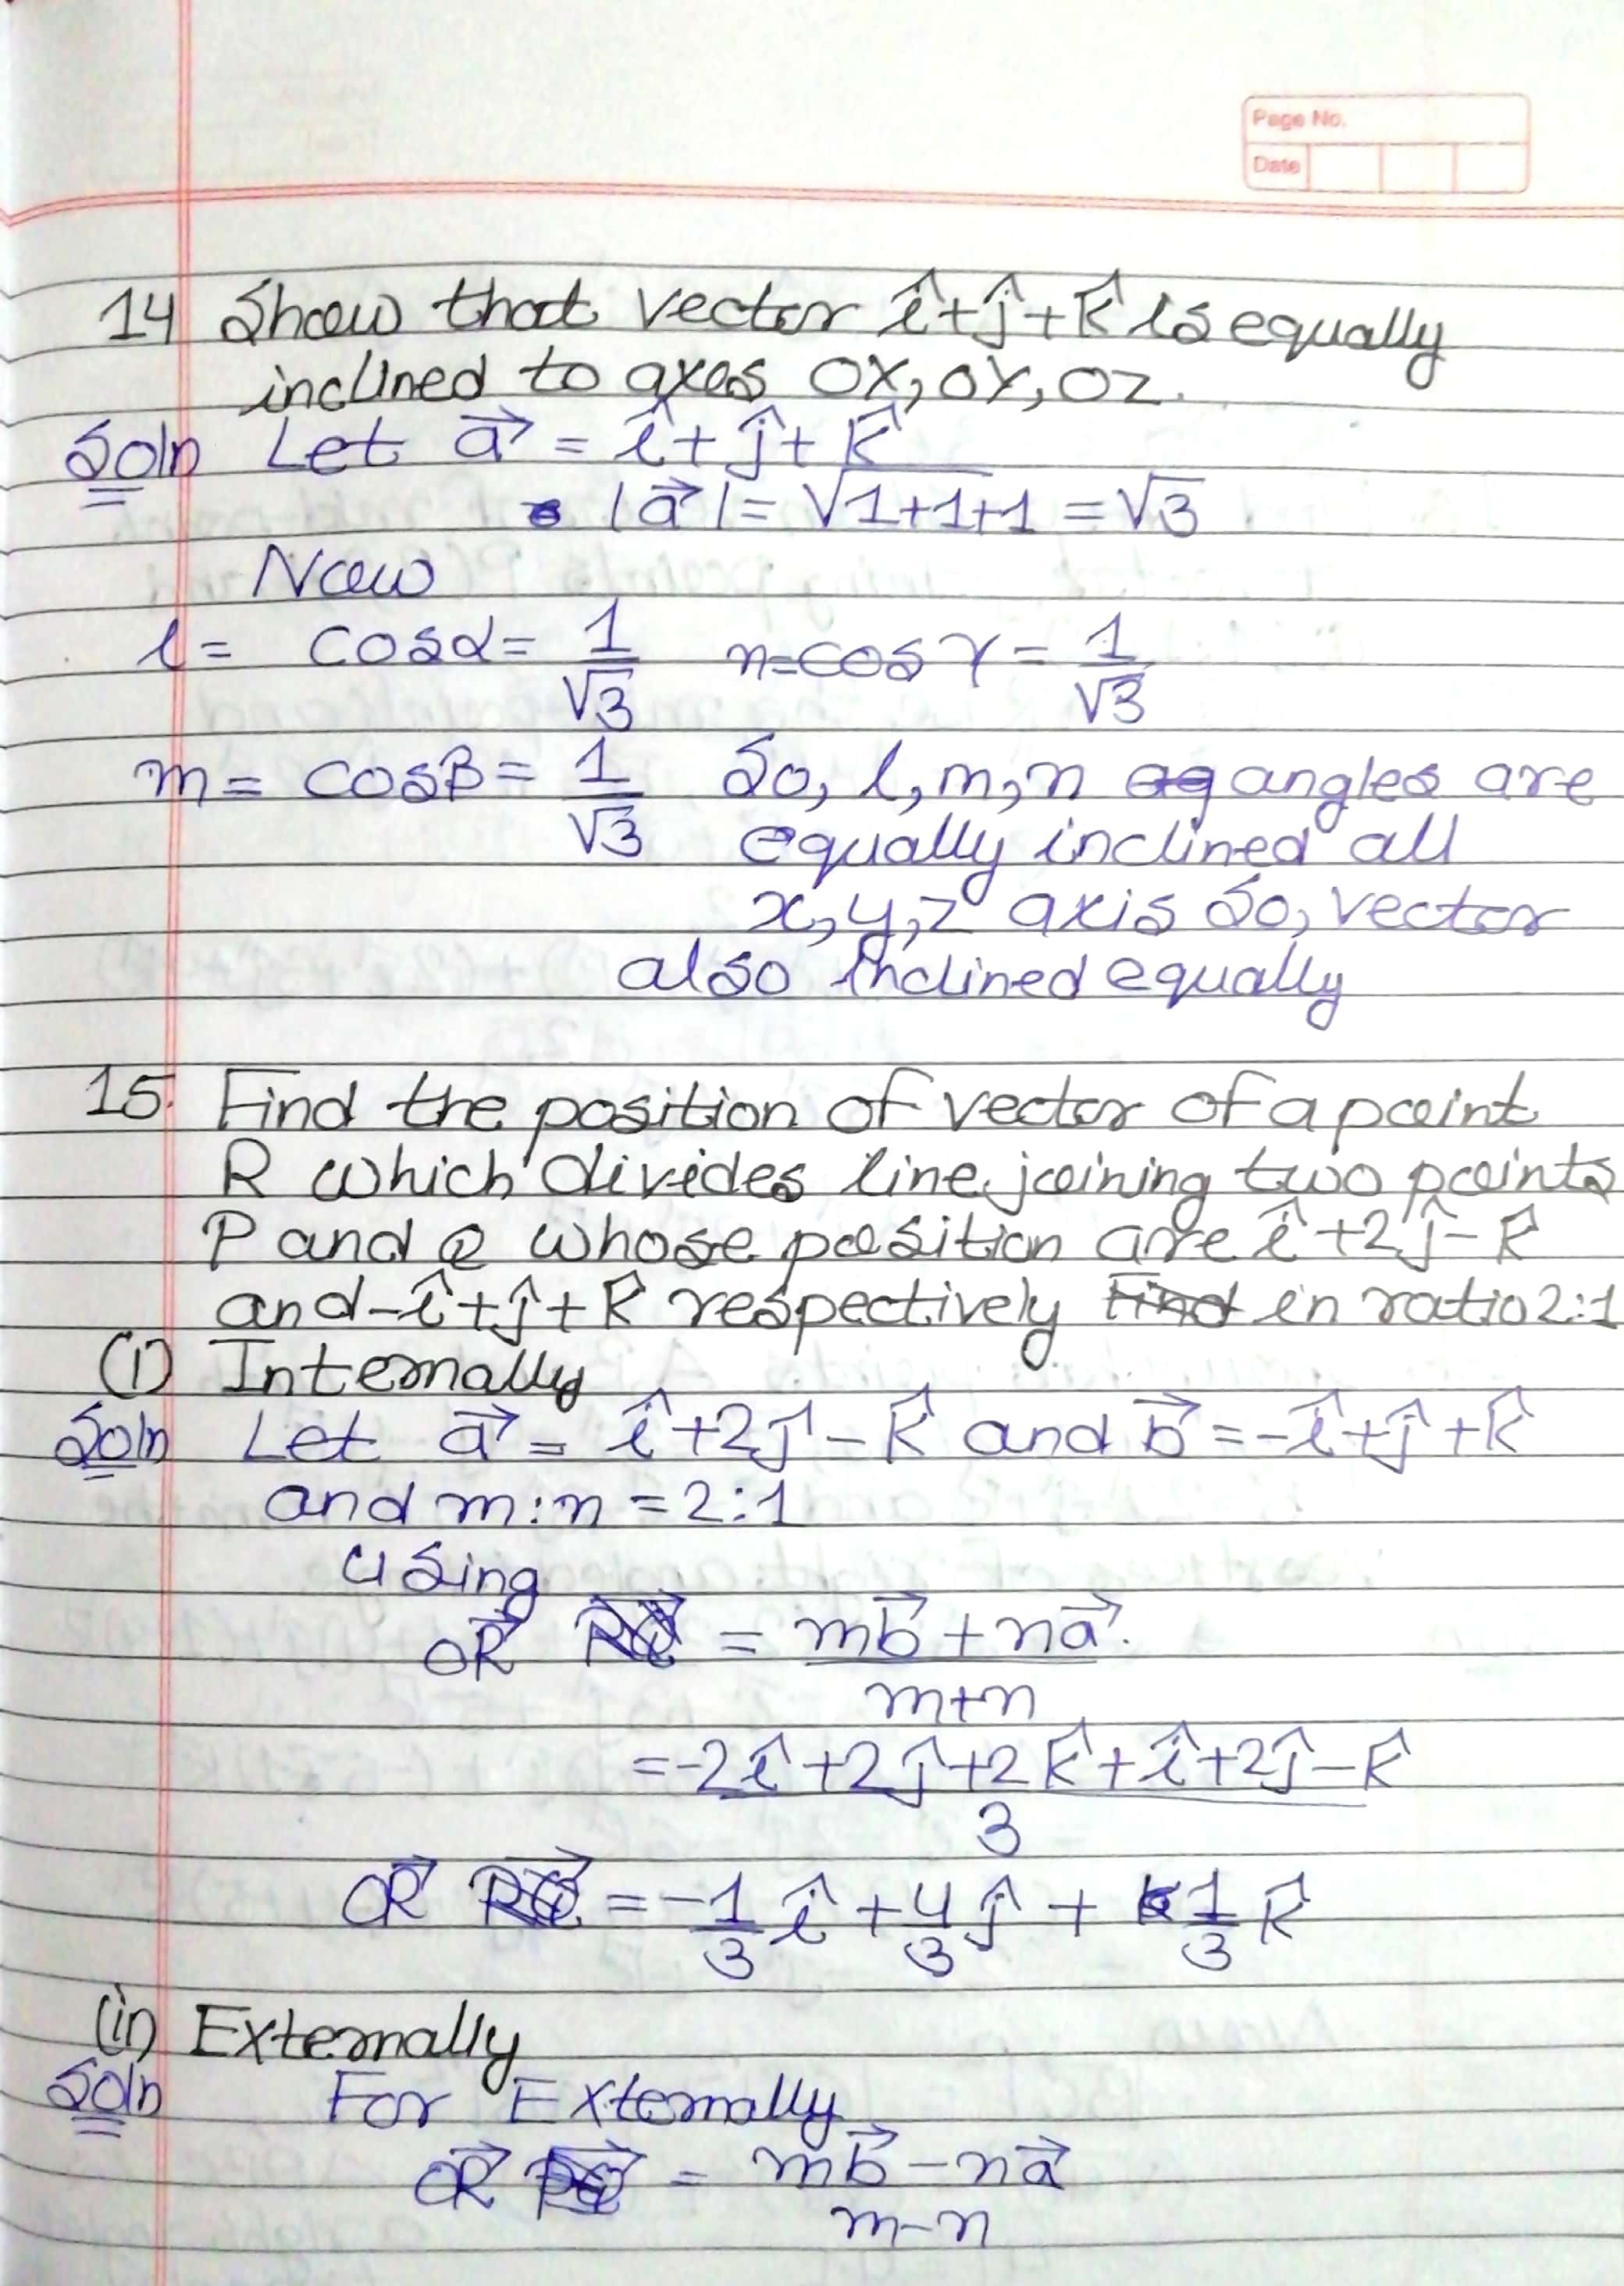 Page No.
Date
14 Show that vector î+ĵ+k̂ is equally
inclined to axes OX, OY, OZ.
Soln Let a⃗ = î+ĵ+k̂
|a⃗| = √1+1+1 = √3
Now
l = cosα = 1/√3 n=cosγ = 1/√3
m = cosβ = 1/√3 So, l, m, n angles are
equally inclined all
x, y, z axis So, vector
also inclined equally
15. Find the position of vector of a point
R which divides line joining two points
P and Q whose position are î+2ĵ-k̂
and -î+ĵ+k̂ respectively Find in ratio 2:1
(i) Internally
Soln Let a⃗ = î+2ĵ-k̂ and b⃗ = -î+ĵ+k̂
and m:n = 2:1
Using
OR⃗ = mb⃗+na⃗/m+n
= -2î+2ĵ+2k̂+î+2ĵ-k̂/3
OR⃗ = -1/3 î + 4/3 ĵ + 1/3 k̂
(ii) Externally
Soln For Externally
OR⃗ = mb⃗-na⃗/m-n